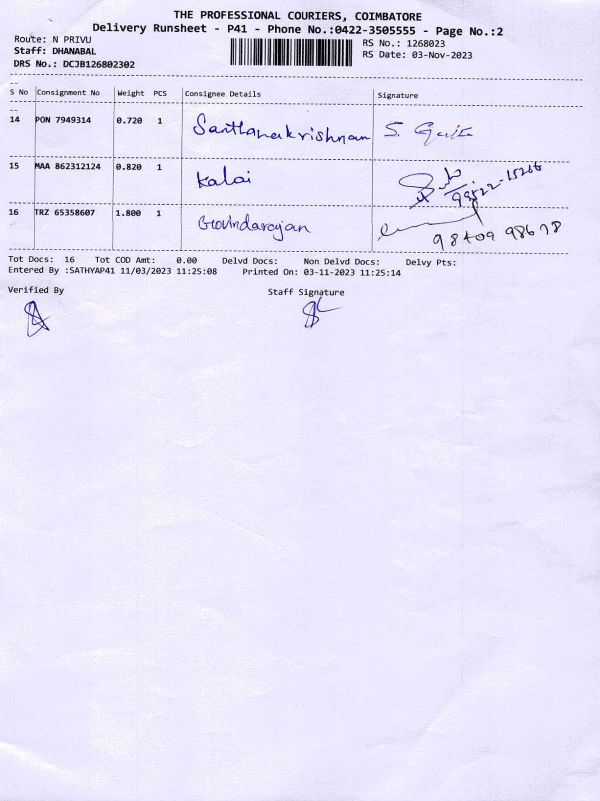 THE PROFESSIONAL COURIERS, COIMBATORE
Delivery Runsheet - P41 - Phone No.:0422-3505555 - Page No.:2
Route: N PRIVU
RS No.: 1268023
Staff: DHANABAL
RS Date: 03-Nov-2023
DRS No.: DCJB126802302
S No Consignment No Weight PCS Consignee Details Signature
14 PON 7949314 0.720 1 Santhanakrishnan S.
15 MAA 862312124 0.820 1 Kalai 99522-15266
16 TRZ 65358607 1.800 1 Govindarajan
98409 98678
Tot Docs: 16 Tot COD Amt: 0.00 Delvd Docs: Non Delvd Docs: Delvy Pts:
Entered By :SATHYAP41 11/03/2023 11:25:08 Printed On: 03-11-2023 11:25:14
Verified By Staff Signature